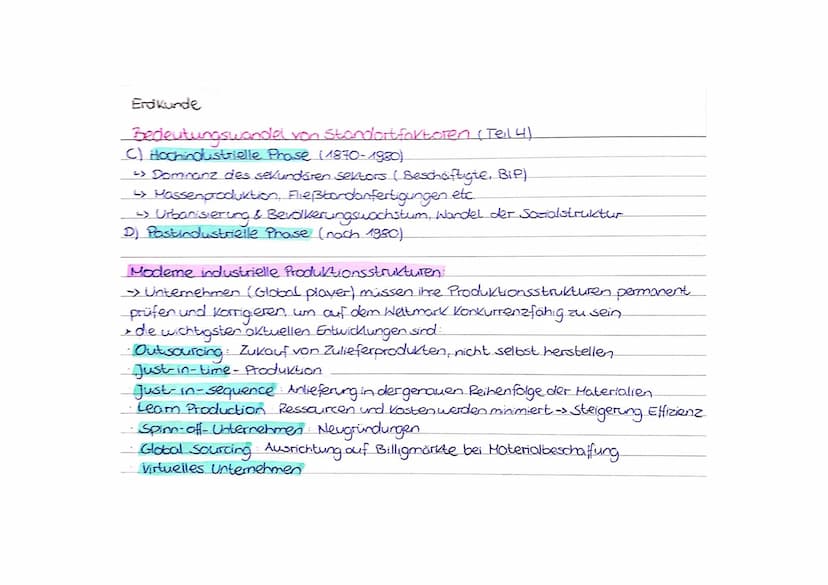 Erdkunde
Bedeutungswandel von Standortfaktoren (Teil 4)
C) Hochindustrielle Phase (1870-1980)
↳ Dominanz des sekundären Sektors (Beschäftigte, BIP)
↳ Massenproduktion, Fließbandanfertigungen etc.
↳ Urbanisierung & Bevölkerungswachstum, Wandel der Sozialstruktur
D) Postindustrielle Phase (nach 1980)
Moderne industrielle Produktionsstrukturen:
→ Unternehmen (Global player) müssen ihre Produktionsstrukturen permanent
prüfen und korrigeren, um auf dem Weltmark konkurrenzfähig zu sein
• die wichtigsten aktuellen Entwicklungen sind:
· Outsourcing: Zukauf von Zulieferprodukten, nicht selbst herstellen
· Just-in-time-Produktion
· Just-in-sequence: Anlieferung in der genauen Reihenfolge der Materialien
· Learn Production: Ressourcen und Kosten werden minimiert → Steigerung Effizienz
· Spinn-off-Unternehmen: Neugründungen
· Global Sourcing: Ausrichtung auf Billigmärkte bei Materialbeschaffung
· Virtuelles Unternehmen